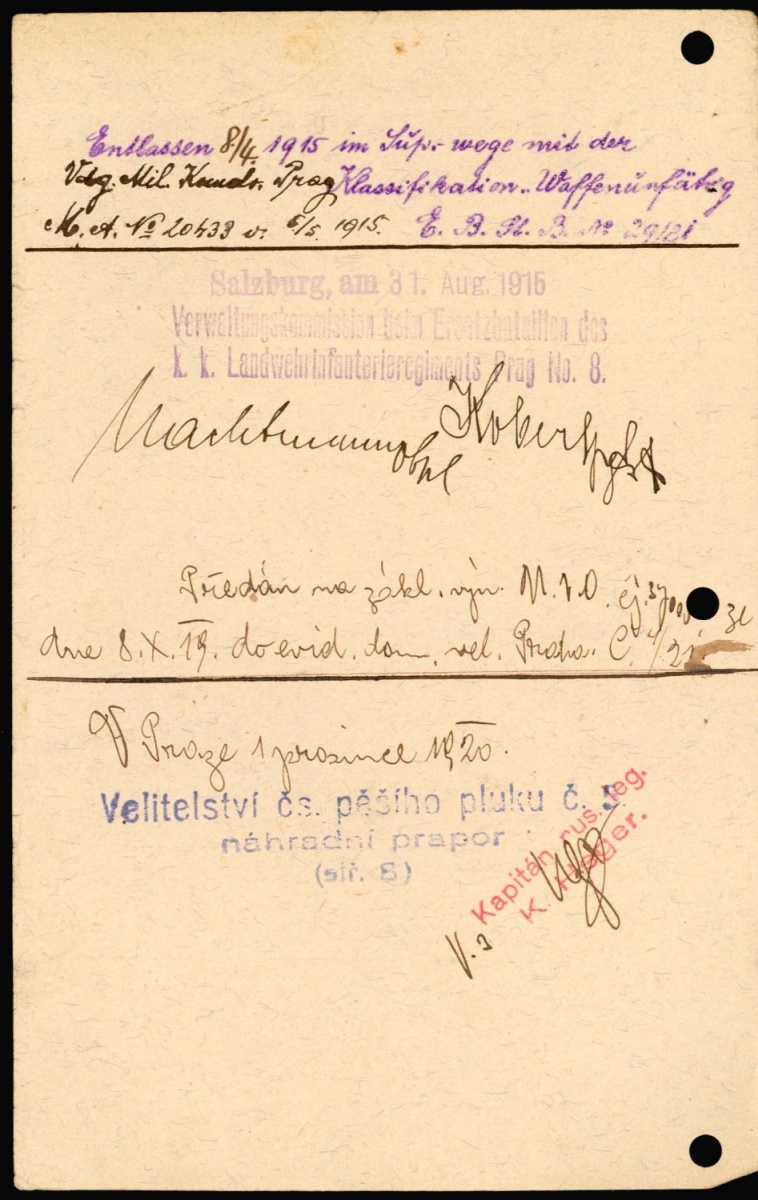 Entlassen 8./4. 1915 im Sup.- wege mit der
Vdg. Mil. Kmdo. Prag Klassifikation „Waffenunfähig
M. A. No 20433 v. 6/5. 1915. E. B. St. B. No 29181
Salzburg, am 31. Aug. 1915
Verwaltungskommission beim Ersatzbataillon des
k. k. Landwehrinfanterieregiments Prag No. 8.
Nachtmann Kobert
Předán na zákl. výn. M. N. O. čj. ze
dne 8. X. 19. do evid. dom. vel. Praha.
V Praze 1 prosince 1920.
Velitelství čs. pěšího pluku č. 5
náhradní prapor
(stř. 8)
Kapitán rus. leg.
K.
V. z